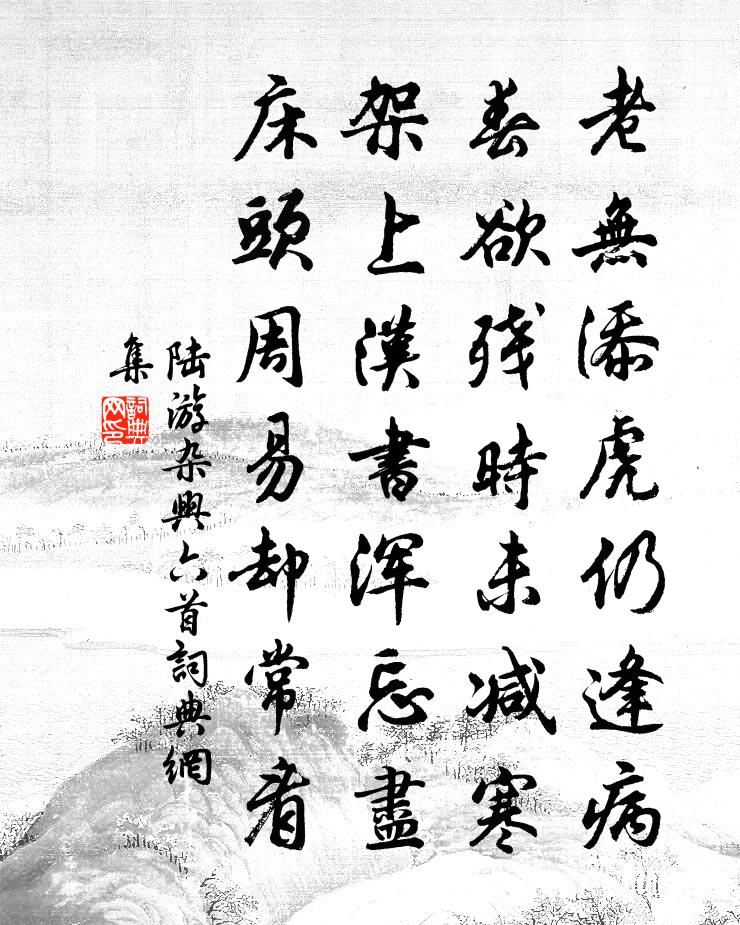 老無添處仍逢病
春欲残時未減寒
架上漢書渾忘盡
床頭周易却常看
陆游杂興六首詞典網
集
詞典
网印